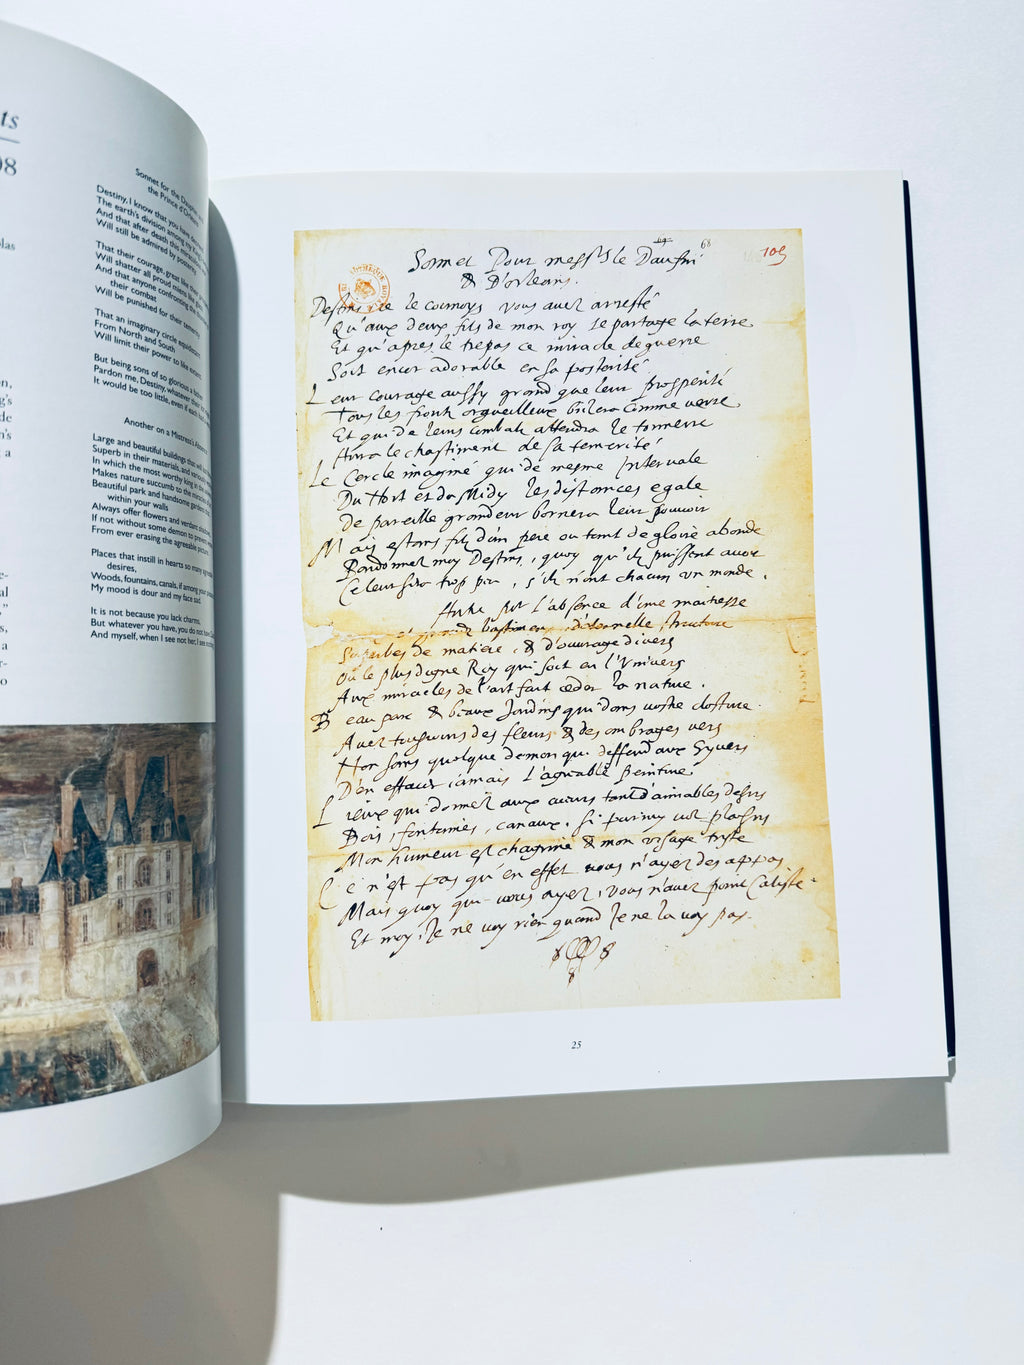 ts
08
las
Sonnet for the Dauphin and
the Prince d'Orléans
Destiny, I know that you have
The earth's division among my King's
And that after death this miracle
Will still be admired by posterity
That their courage, great like their
Will shatter all proud
And that anyone confronting the
their combat
Will be punished for their temerity
That an imaginary circle equidistant
From North and South
Will limit their power to like extent.
But being sons of so glorious a father
Pardon me, Destiny, whatever they
It would be too little, even if each had
Another on a Mistress's Absence
Large and beautiful buildings that will
Superb in their materials, and various
In which the most worthy king in the
Makes nature succumb to the miracles
Beautiful park and handsome gardens that
within your walls
Always offer flowers and verdant shadows
If not without some demon to prevent
From ever erasing the agreeable picture
Places that instill in hearts so many agreeable
desires,
Woods, fountains, canals, if among your
My mood is dour and my face sad
It is not because you lack charms,
But whatever you have, you do not have
And myself, when I see not her, I see nothing
on,
g's
de
n's
a
e-
al
"
s,
a
r-
o
69 68
105
Sonnet Pour mess le Daufin
& D'orleans.
Destins je le connoys vous avez arresté
Qu'aux deux fils de mon roy se partage la terre
Et qu'apres le trepas ce miracle de guerre
Soit encor adorable en sa posterité
Leur courage aussy grand que leur prosperité
Tous les frons orgueilleux brisera comme verre
Et qui de leurs combats attendra le tonnerre
Aura le chastiment de sa temerité
Le Cercle imaginé qui de mesme Intervale
Du Nort et du Midy les distances egale
De pareille grandeur bornera leur pouvoir
Mais estans fils d'un pere ou tant de gloire abonde
Pardonnez moy Destins, quoy qu'ils puissent avoir
Ce leur sera trop peu, s'ils n'ont chacun un monde.
Autre sur l'absence d'une maitresse
bastimens d'eternelle structure
Superbes de matiere, & d'ouvrage divers
Ou le plus digne Roy qui soit en l'Univers
Aux miracles de l'art fait ceder la nature.
Beau parc & beaux Jardins qui dans vostre closture.
Avez tousjours des fleurs & des ombrages vers
Non sans quelque demon qui deffend aux Hyvers
D'en effacer jamais L'agreable peinture
Lieux qui donnez aux cueurs tant d'aimables desirs
Bois, fontaines, canaux, si parmy vos plaisirs
Mon humeur est chagrine & mon visage triste
Ce n'est pas qu'en effet vous n'ayez des appas
Mais quoy que vous ayez, vous n'avez point Caliste.
Et moy, Je ne voy rien quand Je ne la voy pas.
25